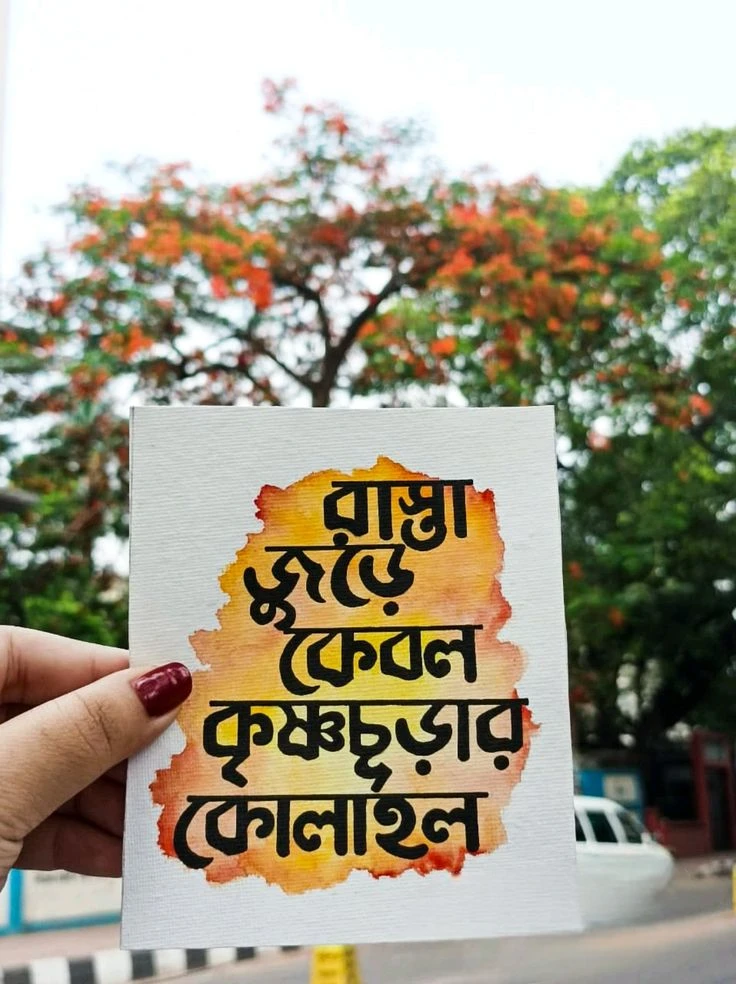 রাস্তা
জুড়ে
কেবল
কৃষ্ণচূড়ার
কোলাহল